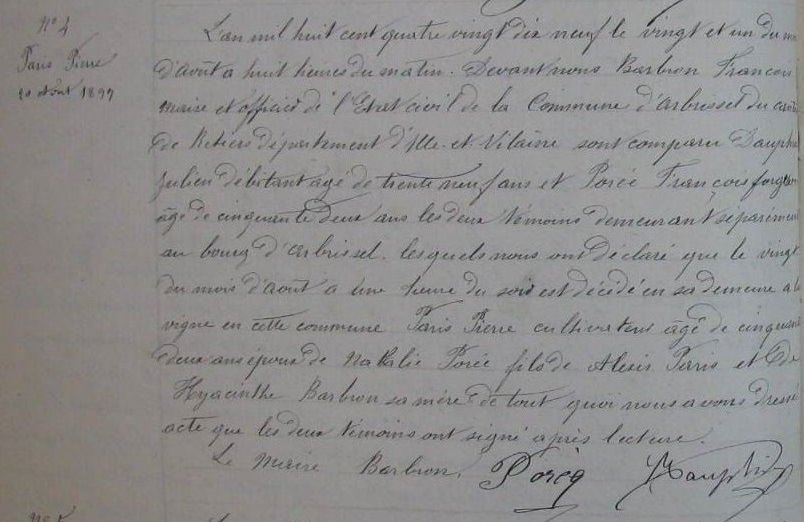 N° 4
Paris Pierre
20 août 1899
L'an mil huit cent quatre vingt dix neuf le vingt et un du mois
d'aout a huit heures du matin. Devant nous Barbron François
maire et officier de l'Etat civil de la Commune d'Arbrissel du canton
de Retiers département d'Ille-et-Vilaine sont comparu Dauphin
Julien débitant agé de trente neuf ans et Porée François forgeron
âgé de cinquante deux ans les deux témoins demeurant séparement
au bourg d'Arbrissel. lesquels nous ont déclaré que le vingt
du mois d'aout a une heure du soir est décédé en sa demeure a la
vigne en cette commune Paris Pierre cultivateur âgé de cinquante
deux ans époux de Nathalie Porée fils de Alexis Paris et de
Hyacinthe Barbron sa mère de tout quoi nous avons dressé
acte que les deux témoins ont signé après lecture.
Le Maire Barbron. Porée Dauphin